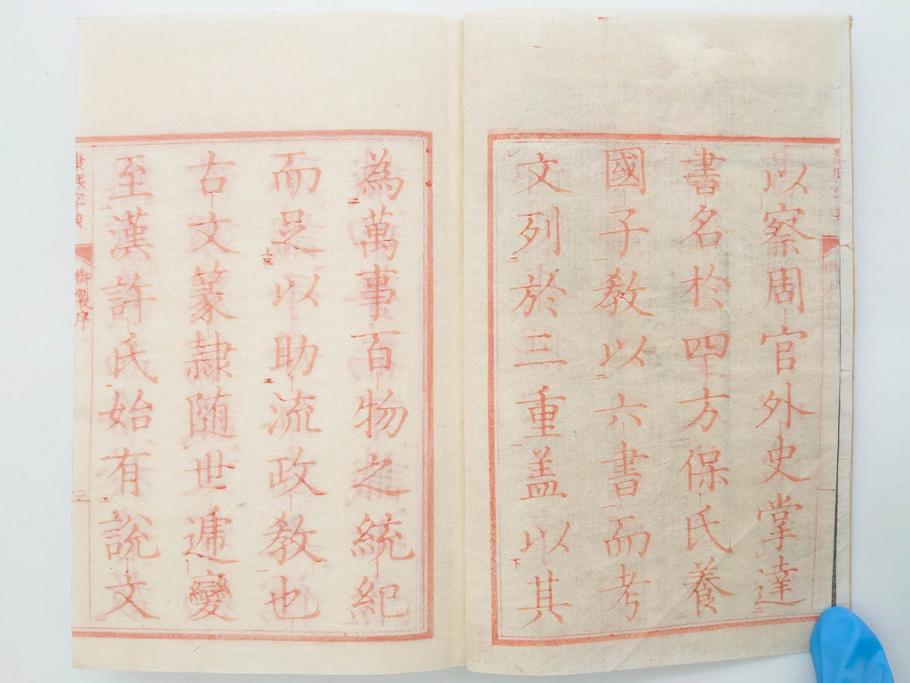 以察周官外史掌達
書名於四方保氏養
國子教以六書而考
文列於三重盖以其
為萬事百物之統紀
而足以助流政教也
古文篆隷随世遞變
至漢許氏始有說文
康熙字典
御製序
二